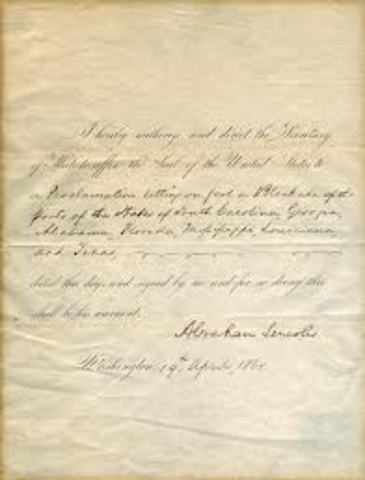 I hereby authorize and direct the Secretary
of State to affix the Seal of the United States to
a Proclamation setting on foot a Blockade of the
ports of the States of South Carolina, Georgia,
Alabama, Florida, Mississippi, Louisiana,
and Texas,
dated this day, and signed by me and for so doing this
shall be his warrant.
Abraham Lincoln
Washington, 19th April, 1861.